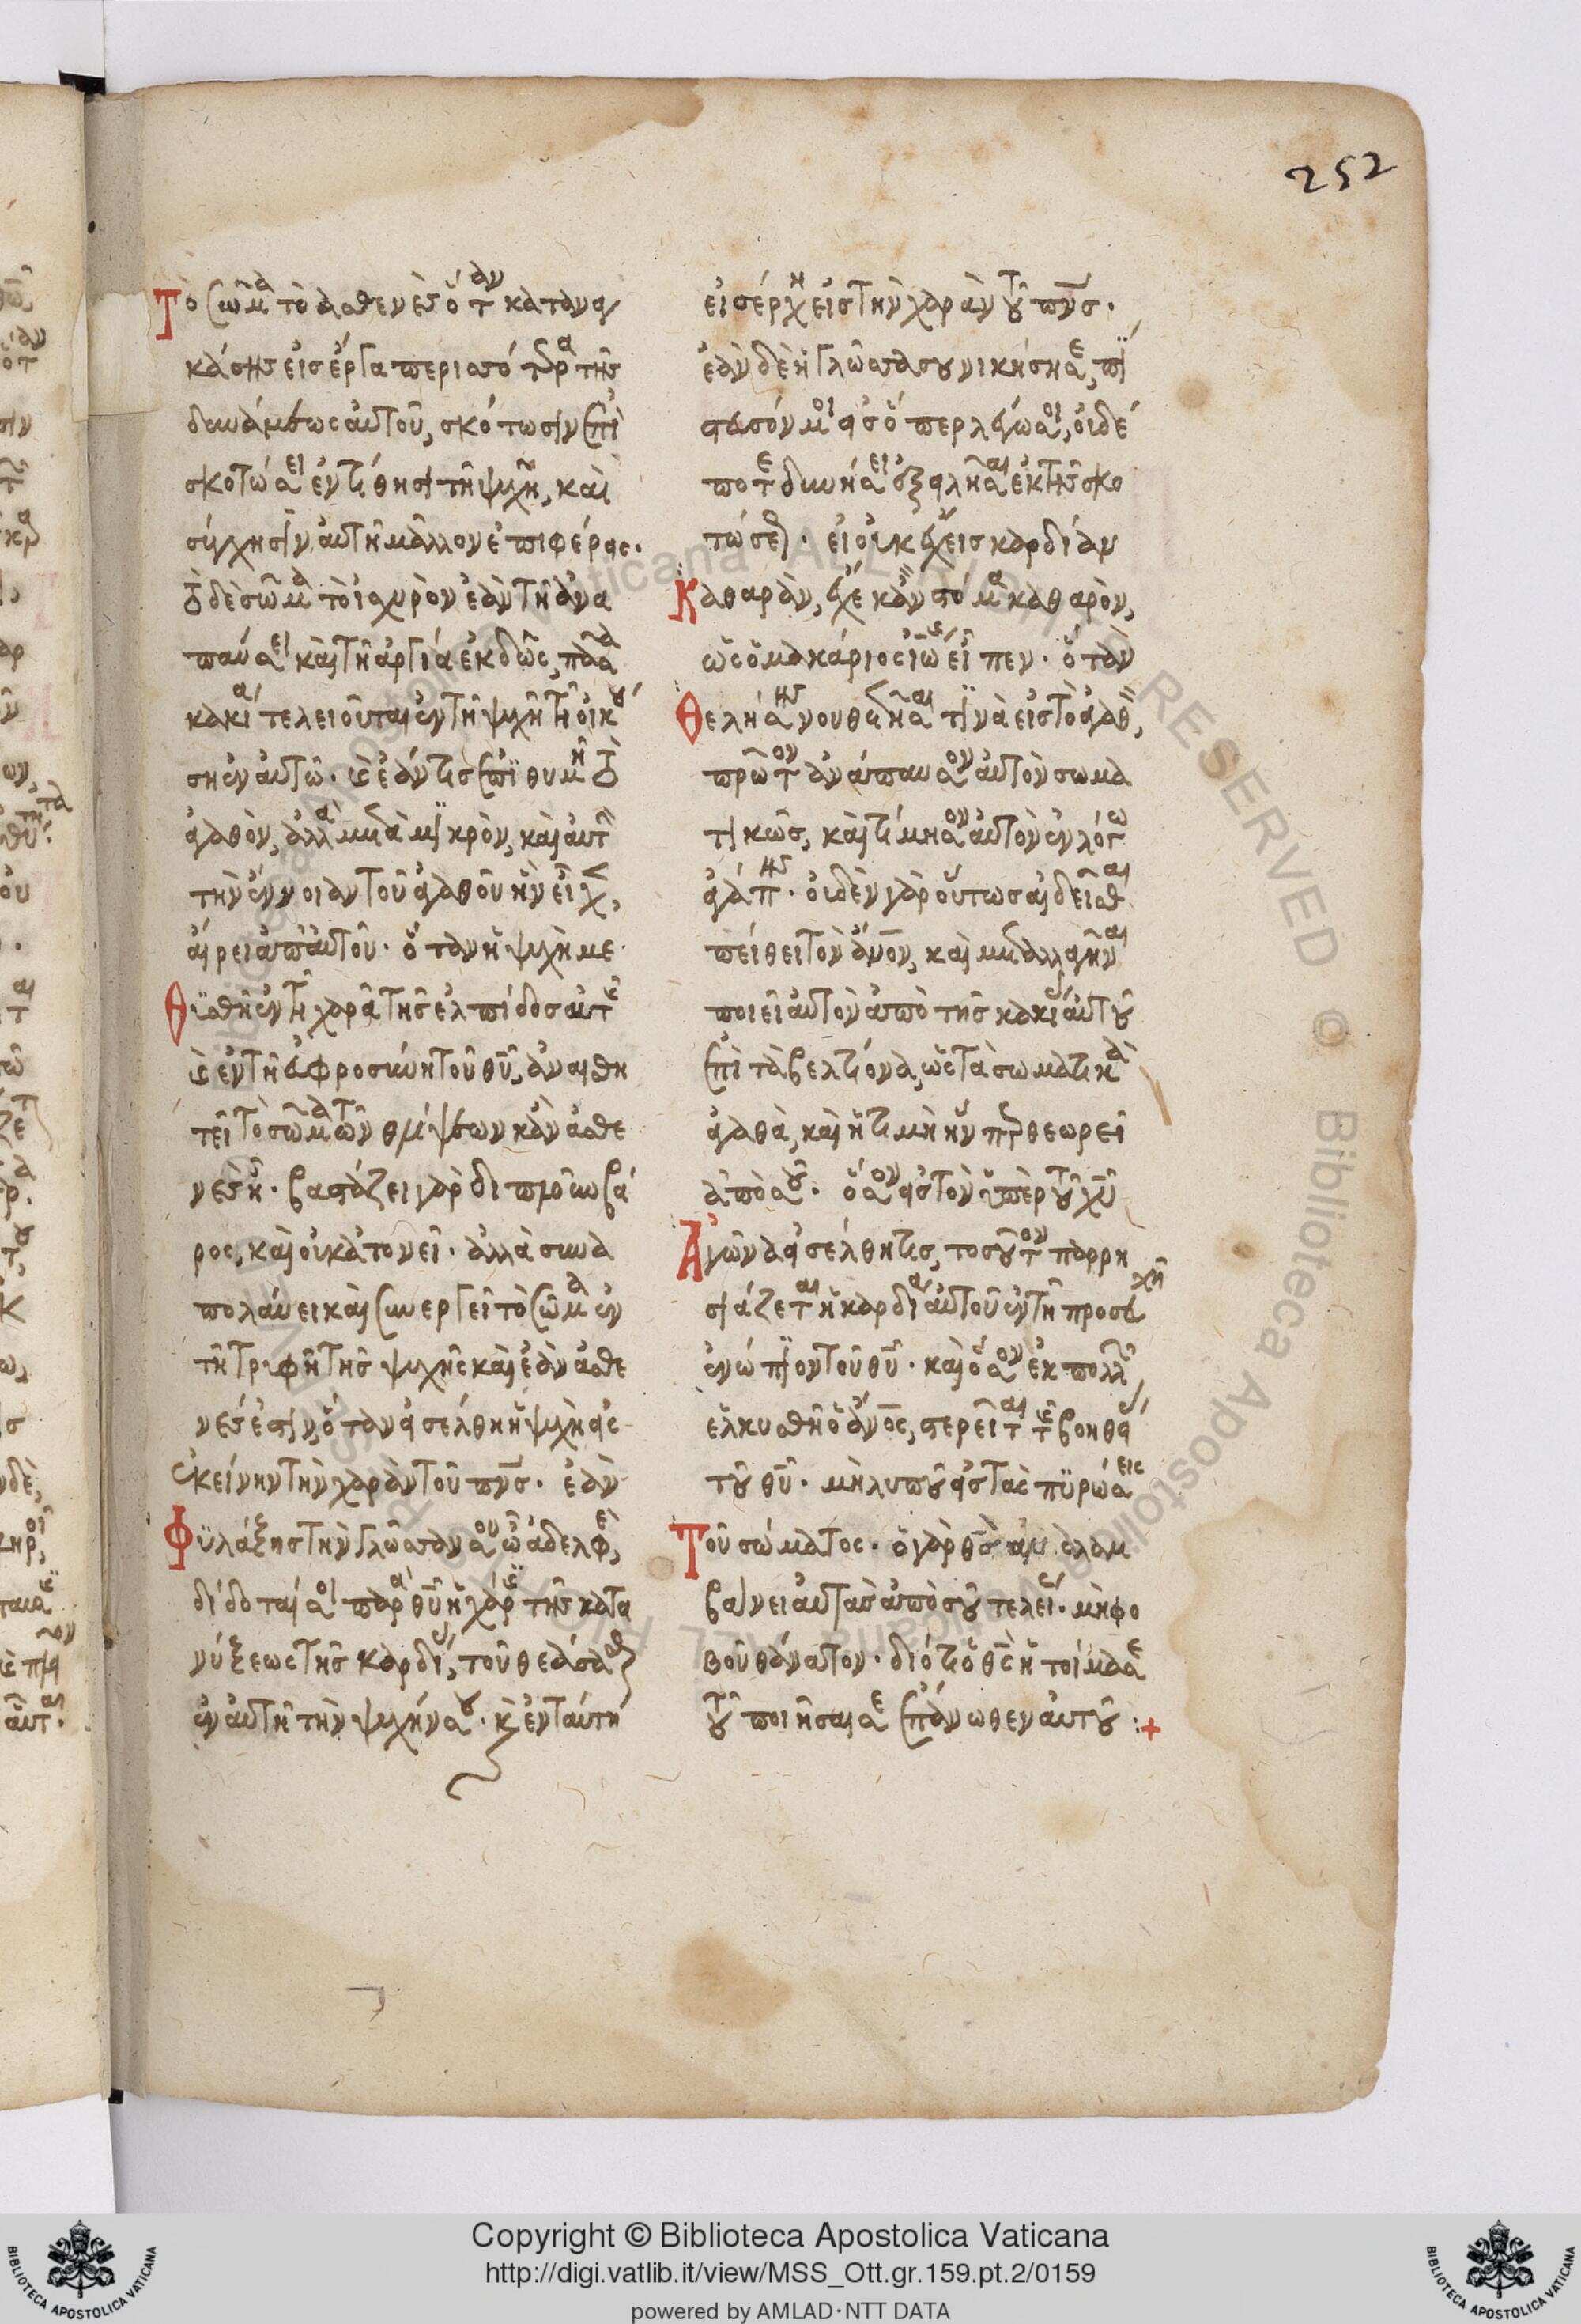 252
Τὸ σῶμα τὸ ἀσθενὲς ὅταν κατανα
κάσης εἰς ἔργα περισσότερα τῆς
δυνάμεως αὐτοῦ, σκότωσιν ἐπὶ
σκοτώσει ἐντίθησι τῇ ψυχῇ, καὶ
σύγχησιν αὐτῇ μᾶλλον ἐπιφέρεις.
τὸ δὲ σῶμα τὸ ἰσχυρὸν ἐὰν τῇ ἀνα
παύσει καὶ τῇ ἀργίᾳ ἐκδῶς, πᾶσα
κακία τελειοῦται ἐν τῇ ψυχῇ τῇ οἰκού
σῃ ἐν αὐτῷ. καὶ ἐάν τις ἐπιθυμῇ τὸ
ἀγαθὸν, ἀλλὰ μετὰ μικρὸν, καὶ αὐτὴν
τὴν ἔννοιαν τοῦ ἀγαθοῦ ἣν εἶχεν,
αἴρει ἀπ' αὐτοῦ. ὅταν ἡ ψυχὴ με
θυσθῇ ἐν τῇ χαρᾷ τῆς ἐλπίδος αὐτῆς
καὶ ἐν τῇ εὐφροσύνῃ τοῦ θυ, ἀναισθη
τεῖ τὸ σῶμα τῶν θλίψεων κἂν ἀσθε
νὲς ᾖ. βαστάζει γὰρ διπλοῦν βά
ρος, καὶ οὐκ ἀτονεῖ. ἀλλὰ συνα
πολαύει καὶ συνεργεῖ τὸ σῶμα ἐν
τῇ τρυφῇ τῆς ψυχῆς καὶ ἐὰν ἀσθε
νές ἐστιν, ὅταν εἰσέλθῃ ἡ ψυχὴ εἰς
ἐκείνην τὴν χαρὰν τοῦ πνς. ἐὰν
φυλάξῃς τὴν γλῶσσάν σου ὦ ἀδελφὲ,
δίδοταί σοι παρὰ θυ ἡ χάρις τῆς κατα
νύξεως τῆς καρδίας, τοῦ θεάσασθαι
ἐν αὐτῇ τὴν ψυχήν σου. καὶ ἐν ταύτῃ
εἰσέρχῃ εἰς τὴν χαρὰν τοῦ πνς.
ἐὰν δὲ ἡ γλῶσσά σου νικήσῃ σε, πί
στευσόν μοι εἰς ὅπερ λέγω σοι, οὐδέ
ποτε δυνήσει ἐξαλῆσαι ἐκ τῆς σκο
τώσεως. εἰ οὐκ ἔχεις καρδίαν
καθαρὰν, ἔχε κἂν στόμα καθαρὸν,
ὡς ὁ μακάριος ἰωάννης εἶπεν. ὅταν
θελήσῃς νουθετῆσαι τινὰ εἰς τὸ ἀγαθὸν,
πρῶτον ἀνάπαυσον αὐτὸν σωμα
τικῶς, καὶ τίμησον αὐτὸν ἐν λόγῳ
ἀγάπης. οὐδὲν γὰρ οὕτως αἰδεῖσθαι
πείθει τὸν ἀνον, καὶ μεταλλαγῆναι
ποιεῖ αὐτὸν ἀπὸ τῆς κακίας αὐτοῦ
ἐπὶ τὰ βελτίονα, ὡς τὰ σωματικὰ
ἀγαθὰ, καὶ ἡ τιμὴ ἣν περ θεωρεῖ
ἀπὸ σοῦ. ὅσον εἰς τὸν ὑπὲρ τοῦ χυ
ἀγῶνα εἰσέλθῃ τις, τοσοῦτον παρρη
σιάζεται ἡ καρδία αὐτοῦ ἐν τῇ προσευχῇ
ἐνώπιον τοῦ θυ. καὶ ὅσον ἐκ πολλῶν
ἑλκυσθῇ ὁ ἀνος, στερεῖται τῆς βοηθείας
τοῦ θυ. μὴ λυποῦ εἰς τὰς πυρώσεις
τοῦ σώματος. ὁ γὰρ θς ἀμελαμ
βάνει αὐτὰς ἀπὸ σοῦ τελείως. μὴ φο
βοῦ θάνατον. διότι ὁ θς ἡτοίμασε
τοῦ ποιῆσαί σε ἐπάνωθεν αὐτοῦ :+
Copyright © Biblioteca Apostolica Vaticana
http://digi.vatlib.it/view/MSS_Ott.gr.159.pt.2/0159
powered by AMLAD·NTT DATA